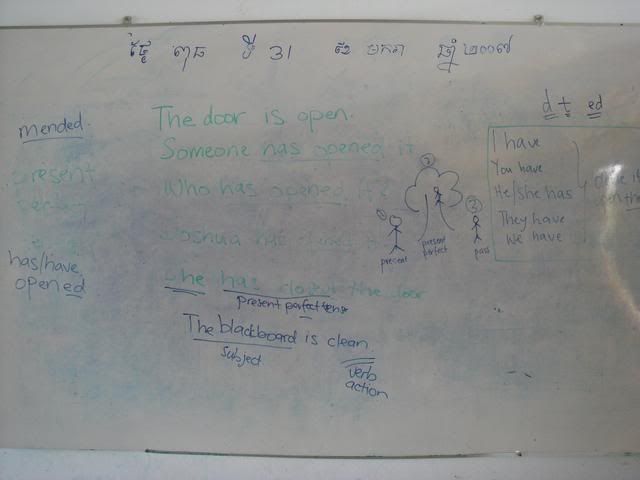 ថ្ងៃ ពុធ ទី 31 ខែ មករា ឆ្នាំ ២០០៧
mended
present
The door is open.
Someone has opened it
Who has opened it?
Joshua has
has/have
opened
She has closed the door
present perfect tense
The blackboard is clean
subject
verb
action
1
present
2
present
perfect
3
pass
d t ed
I have
You have
He/she has
They have
We have